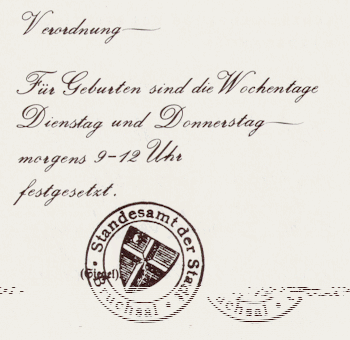 Verordnung
Für Geburten sind die Wochentage
Dienstag und Donnerstag
morgens 9-12 Uhr
festgesetzt.
Standesamt der Stadt
(Siegel)
Bruchsal